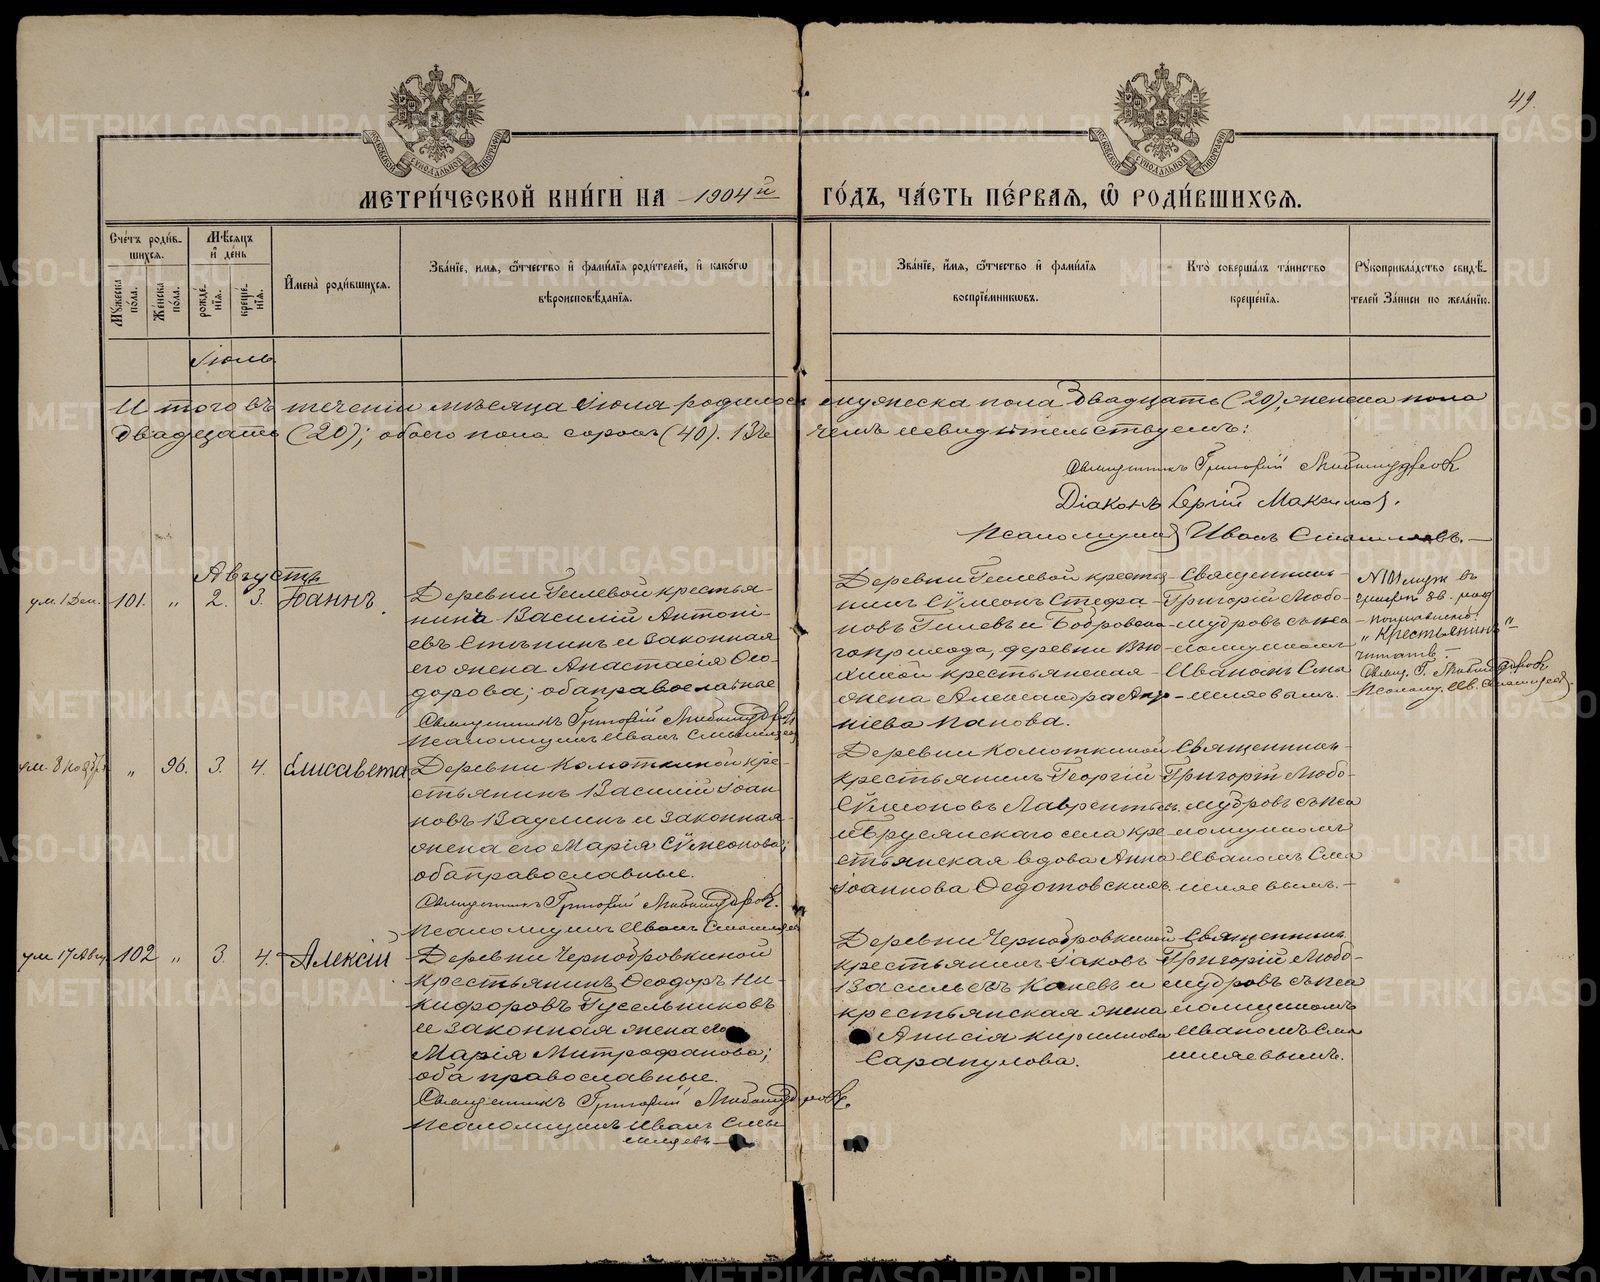 49.
МЕТРИ́ЧЕСКОЙ КНИ́ГИ НА 1904й ГО́ДЪ, ЧА́СТЬ ПЕ́РВАѦ, Ѡ҆ РОДИ́ВШИХСѦ.
Сче́тъ роди́вшихсѧ.
Мꙋ́жеска по́ла.
Же́нска по́ла.
Мѣ́сѧцъ и҆ де́нь
рожде́нїѧ.
креще́нїѧ.
И҆мена̀ роди́вшихсѧ.
Зва́нїе, и҆́мѧ, ѻ҆́тчество и҆ фами́лїѧ роди́телей, и҆ како́гѡ
вѣроисповѣ́данїѧ.
Зва́нїе, и҆́мѧ, ѻ҆́тчество и҆ фами́лїѧ
воспрїе́мникѡвъ.
Кто̀ соверша́лъ та́инство
креще́нїѧ.
Рꙋкоприкла́дство свидѣ́телей за́писи по жела́нїю.
Іюль
Итого въ теченіи мѣсяца Іюля родилось мужеска пола двадцать (20); женска пола
двадцать (20); обоего пола сорокъ (40). Въ чемъ и свидѣтельствуемъ:
Священникъ Григорій Любомудровъ
Діаконъ Сергій Максимов.
Псаломщикъ Иванъ Смышляевъ.
Августъ
ум. 1 Дек. 101. " 2. 3. Іоаннъ.
Деревни Гилевой крестья-
нинъ Василій Антоні-
евъ Стѣнинъ и законная
его жена Анастасія Ѳео-
дорова; оба православные
Священникъ Григорій Любомудровъ
Псаломщикъ Иванъ Смышляевъ
Деревни Гилевой кресть-
нинъ Сѵмеонъ Стефа-
новъ Гилевъ и Бобровска-
го прихода, деревни Вью-
хиной крестьянская
жена Александра Анд-
ніева Панова.
Священникъ
Григорій Любо-
мудровъ съ пса-
ломщикомъ
Иваномъ Смы-
шляевымъ.
№ 101 муж въ
поправкою:
"Крестьянинъ"
читать
Свящ. Г. Любомудровъ
Псаломщ. Ив. Смышляев.
ум. 8 Ноябр " 96. 3. 4. Елисавета
Деревни Комоткиной кре-
стьянинъ Василій Іоан
новъ Ваулинъ и законная
жена его Марія Сѵмеонова;
оба православные.
Священникъ Григорій Любомудровъ.
Псаломщикъ Иванъ Смышляевъ
Деревни Комоткиной
крестьянинъ Георгій
Сѵмеоновъ Лаврентьевъ
и Брусянскаго села кре-
стьянская вдова Анна
Іоаннова Ѳедотовскихъ.
Священникъ
Григорій Любо-
мудровъ съ пса
ломщикомъ
Иваномъ Смы
шляевымъ.
ум. 17 Авгу. 102 " 3. 4. Алексій
Деревни Чернобровкиной
крестьянинъ Ѳеодоръ Ни-
кифоровъ Гусельниковъ
и законная жена его
Марія Митрофанова;
оба православные.
Священникъ Григорій Любомудровъ.
Псаломщикъ Иванъ Смы
шляевъ
Деревни Чернобровкиной
крестьянинъ Іаковъ
Васильевъ Каневъ и
крестьянская жена
Анисія Кириллова
Сарапулова.
Священникъ
Григорій Любо-
мудровъ съ пса
ломщикомъ
Иваномъ Смы
шляевымъ.
METRIKI.GASO-URAL.RU